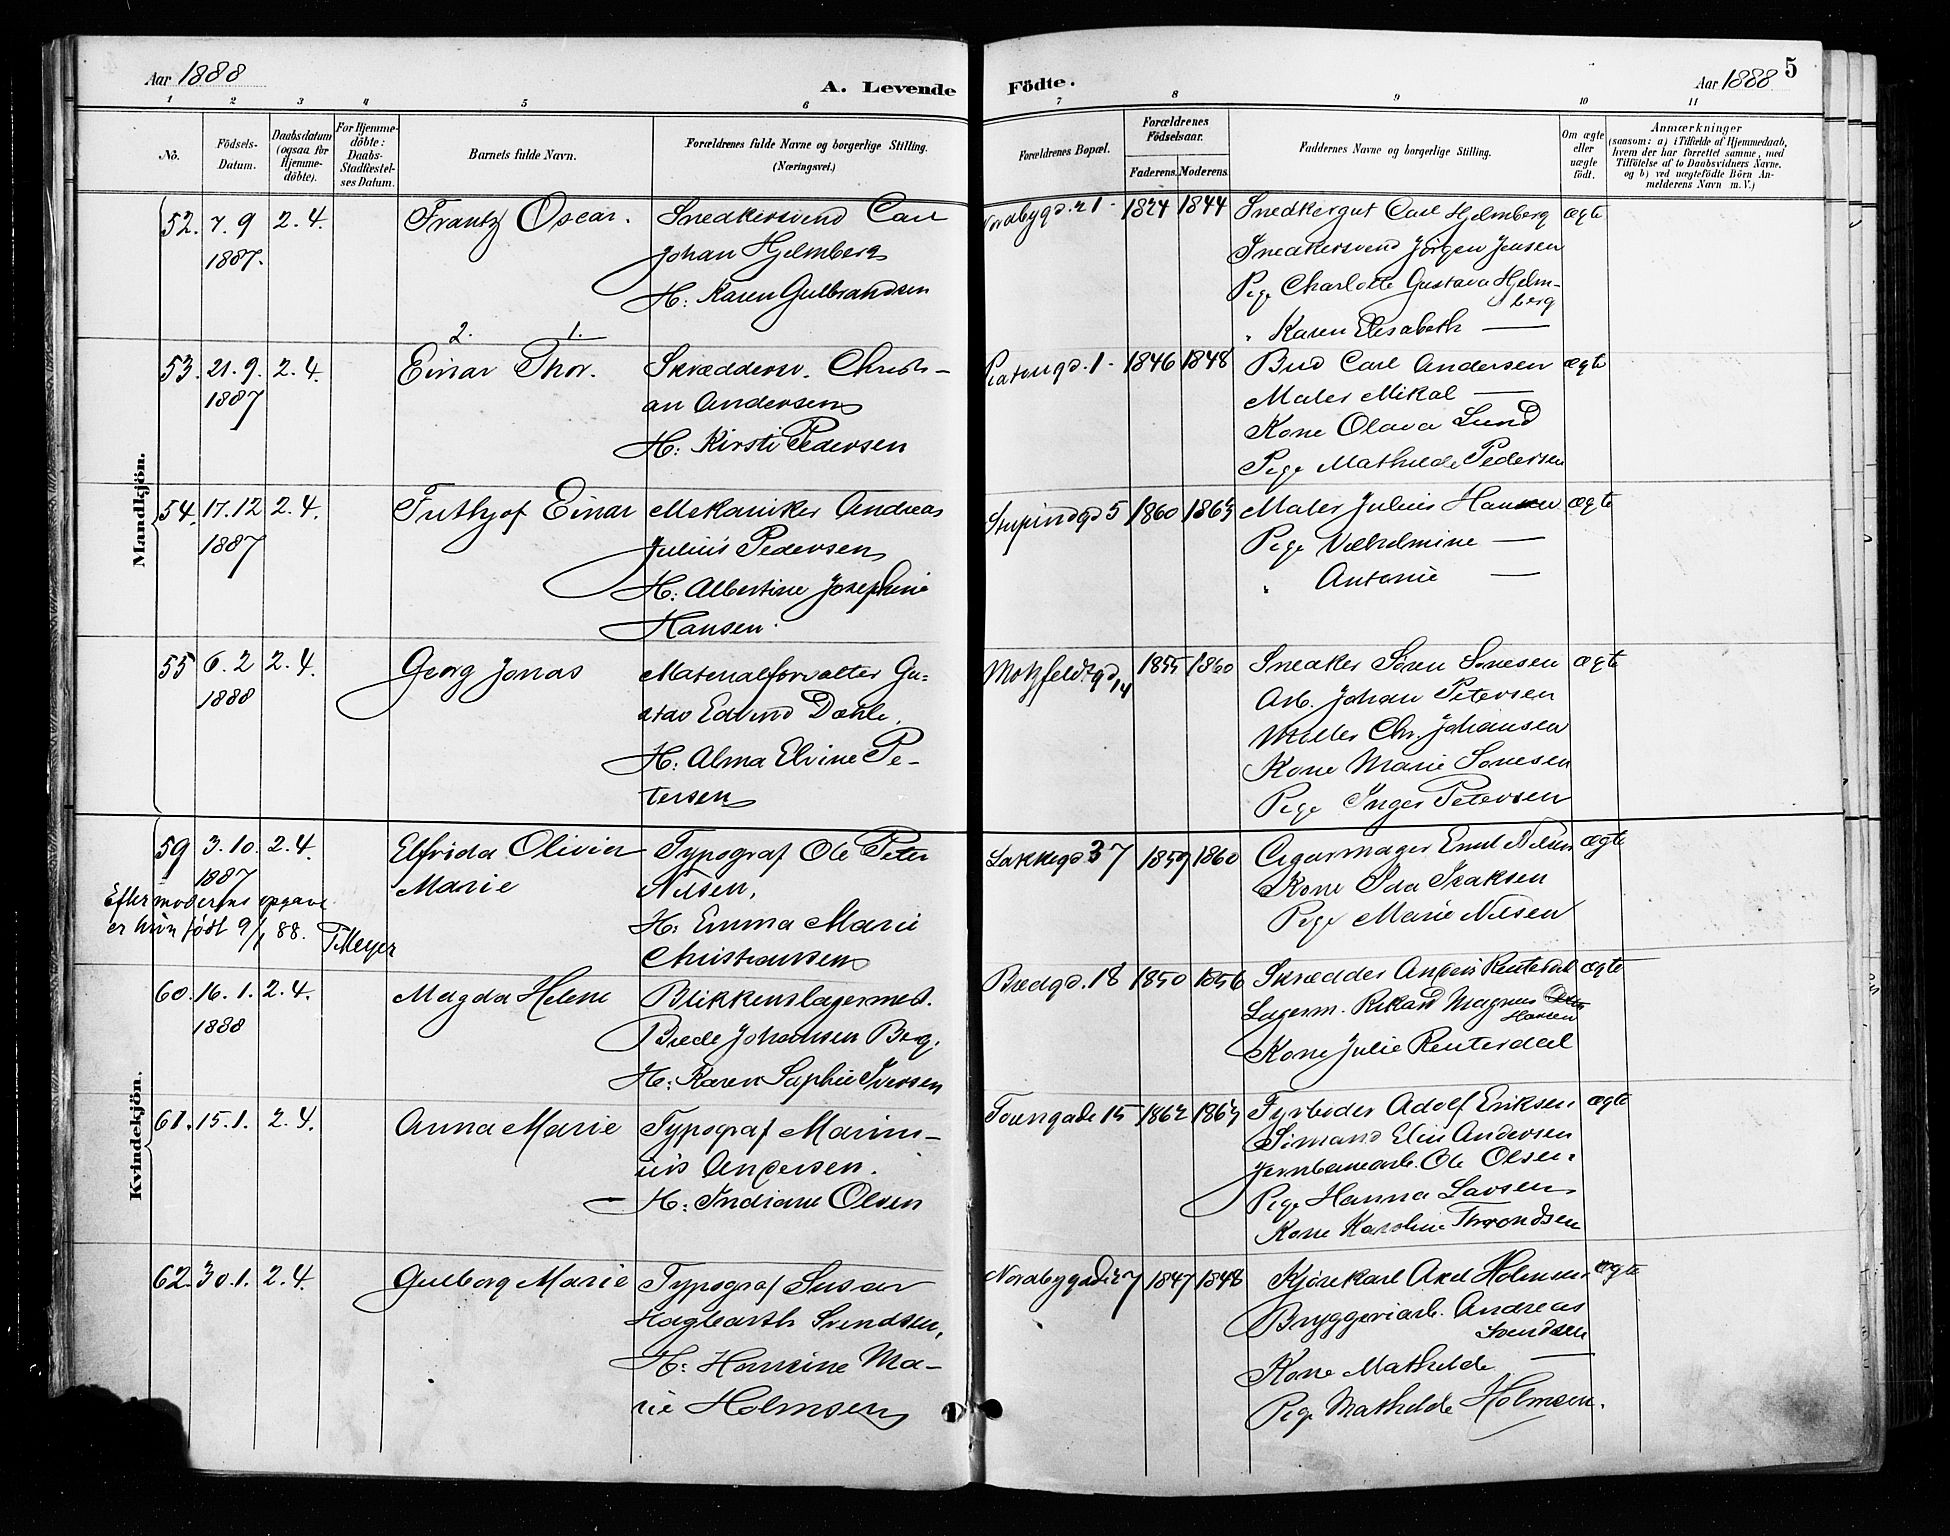 Aar 1888
A. Levende
Födte.
Aar 1888
5
1 2 3 4 5 6 7 8 9 10 11
No.
Födsels-
Datum.
Daabsdatum
(ogsaa for
Hjemme-
döbte).
For Hjemme-
döbte:
Daabs-
Stadfæstel-
ses Datum.
Barnets fulde Navn.
Forældrenes fulde Navne og borgerlige Stilling.
(Næringsvei.)
Forældrenes Bopæl.
Forældrenes
Födselsaar.
Faderens. Moderens.
Faddernes Navne og borgerlige Stilling.
Om ægte
eller
uægte
født.
Anmærkninger
(saasom: a) i Tilfælde af Hjemmedaab,
hvem der har forrettet samme, med
Tilföielse af to Daabsvidners Navne.
og b) ved uægtefödte Börn An-
melderens Navn m. V.)
Mandkjön.
52. 7.9 2.4.
1887.
Frantz Oscar.
Snedkersvend Carl
Johan Hjelmberg
H: Karen Gulbrandsen
Nordbygd. 21. 1824 1844
Snedkergut Carl Hjelmberg ægte
Snedkersvend Jörgen Jensen
Pige Charlotte Gustava Hjelm-
berg
" Karen Elisabeth —
53. 21.9. 2.4.
1887
2. 1.
Einar Thor.
Skrædersv. Christi-
an Andersen
H: Kirsti Pedersen
1. 1846 1848
Bud Carl Andersen ægte
Maler Mikal —
Kone Olava Lund
Pige Mathilde Pedersen
54. 17.12 2.4.
1887
Frithjof Einar
Mekaniker Andreas
Julius Pedersen
H: Albertine Josephine
Hansen.
Stupindgd 5 1860 1863
Maler Julius Hansen ægte
Pige Vilhelmine —
" Antonie —
55 6.2 2.4.
1888
Georg Jonas
Materialforvalter Gu-
stav Edvind Dæhle.
H: Alma Elvine Pe-
tersen
Motzfeldtsgd 14 1855 1860
Snedker Sören Sonesen ægte
Arb. Johan Petersen
Møller Chr. Johansen
Kone Marie Sonesen
Pige Inger Petersen
Kvindekjön.
59 3.10. 2.4.
1887
Efter moderens opgave
er hun født 9/1 88. T Meyer
Elfrida Olivia
Marie
Typograf Ole Peter
Nilsen,
H: Emma Marie
Christiansen
Lakkegd. 37 1859 1860
Cigarmager Emil Nilsen ægte
Kone Ida Isaksen
Pige Marie Nilsen
60. 16.1. 2.4.
1888
Magda Helene
Blikkenslagermest.
Brede Johansen Berg.
H: Karen Sophie Iversen
Bredgd. 18 1850 1856
Skrædder Anders Reuterdal ægte
Lagerm. Rikard Magnus
Hansen
Kone Julie Reuterdal
61. 15.1. 2.4.
Anna Marie
Typograf Marin-
ius Andersen.
H: Indiane Olsen
Tøiengade 15 1862 1863
Fyrbøder Adolf Eriksen ægte
Sömand Elias Andersen
Jernbanearb. Ole Olsen.
Pige Hanna Larsen
Kone Karoline Throndsen
62. 30.1. 2.4.
Gulborg Marie
Typograf
Hagbarth Svendsen,
H: Hansine Ma-
rie Holmsen
Nordbygade 27 1847 1848
Kjørekarl Axel Holmsen ægte
Bryggeriarb. Andreas
Svendsen
Kone Mathilde —
Pige Mathilde Holmsen.